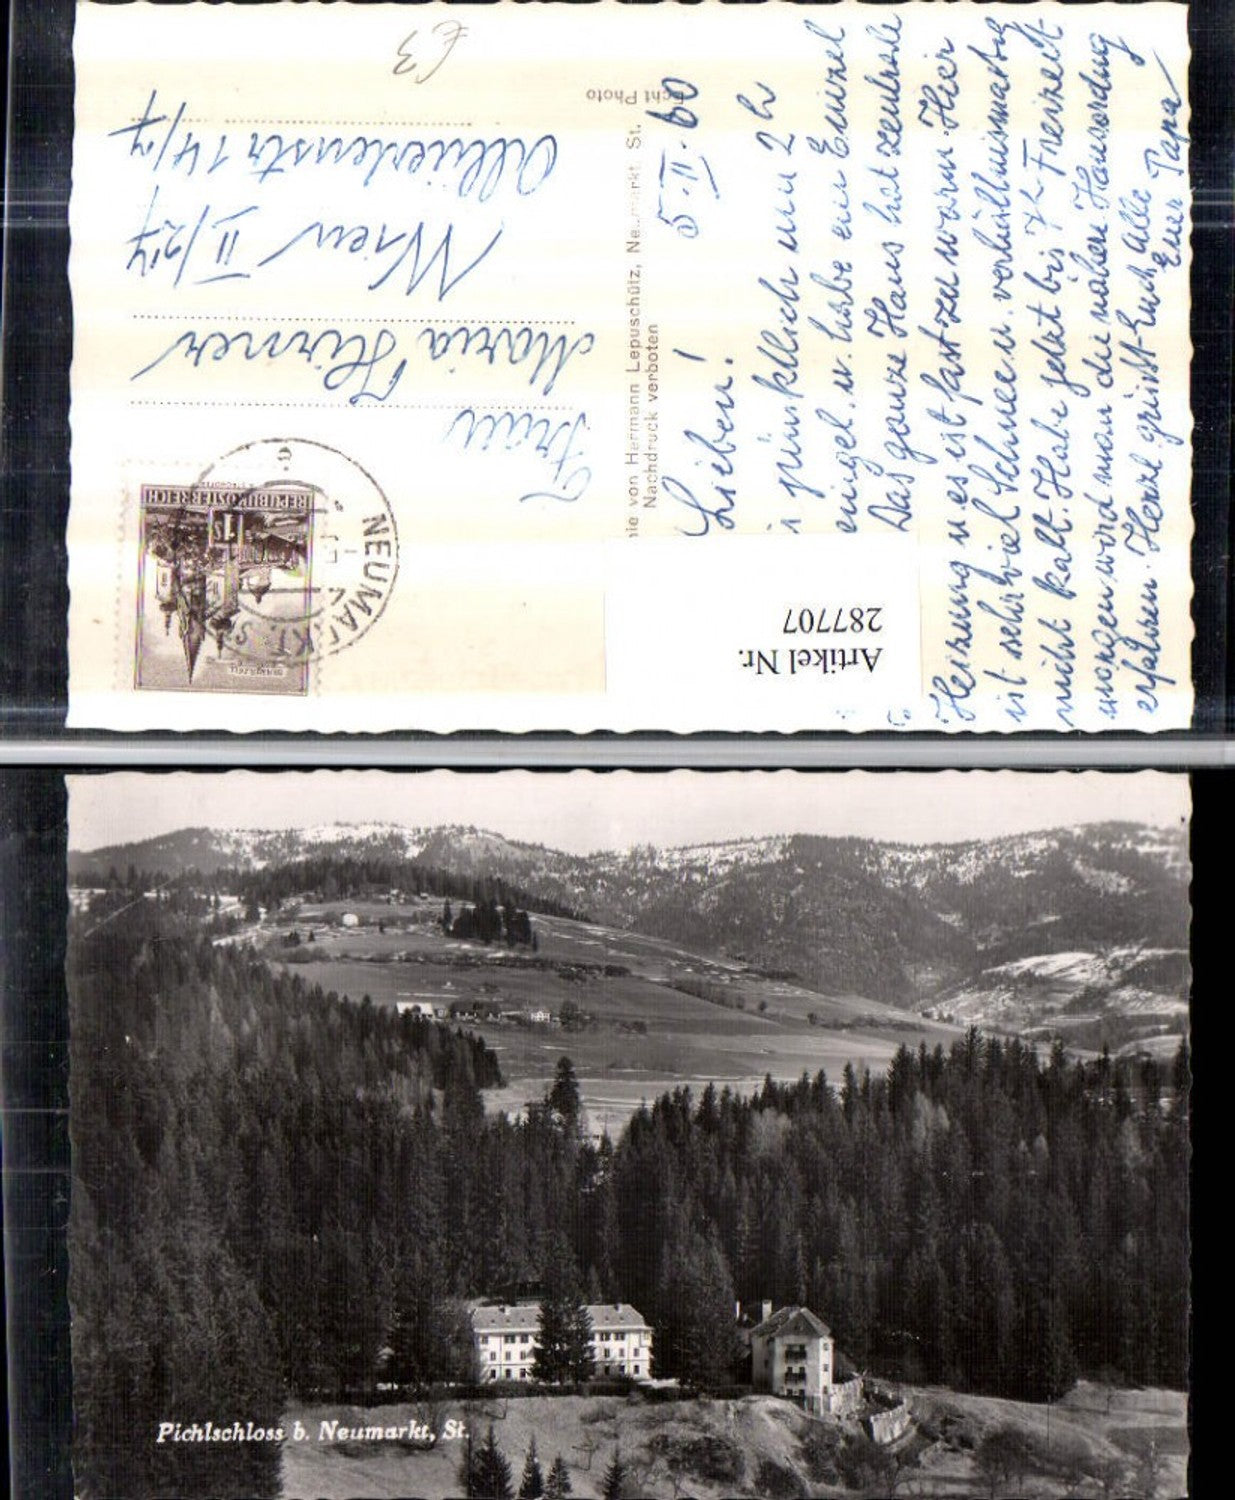 5.II.60
Lieben!
pünktlich um 2 h
eingel. u. habe ein Einzel
Das ganze Haus hat zentrale
Heizung u es ist fast zu warm. Hier
ist sehr viel Schnee u. verhältnismäßig
nicht kalt. Habe jetzt bis 7 h Freizeit
morgen wird man die nähen Hausordnung
erfahren. Herzl. grüsst Euch alle
Euer Papa
Echt Photo
nie von Hermann Lepuschütz, Neumarkt. St.
Nachdruck verboten
REPUBLIK ÖSTERREICH
1 S
NEUMARKT, ST
Frau
Maria Hirner
Wien II/27
14/7
€3
Artikel Nr.
287707
Pichlschloss b. Neumarkt, St.